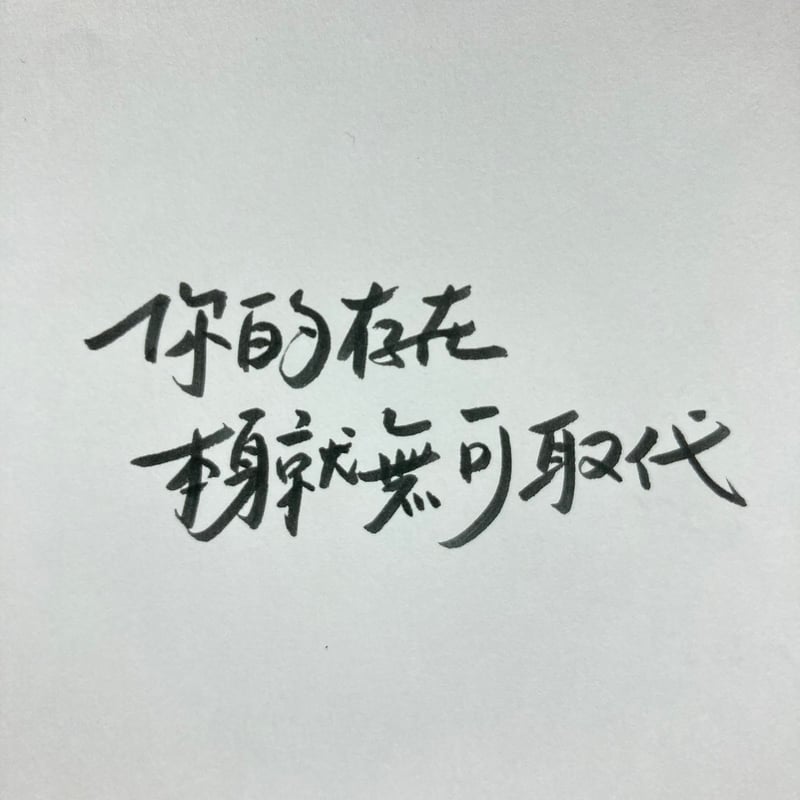 你的存在
本身就無可取代